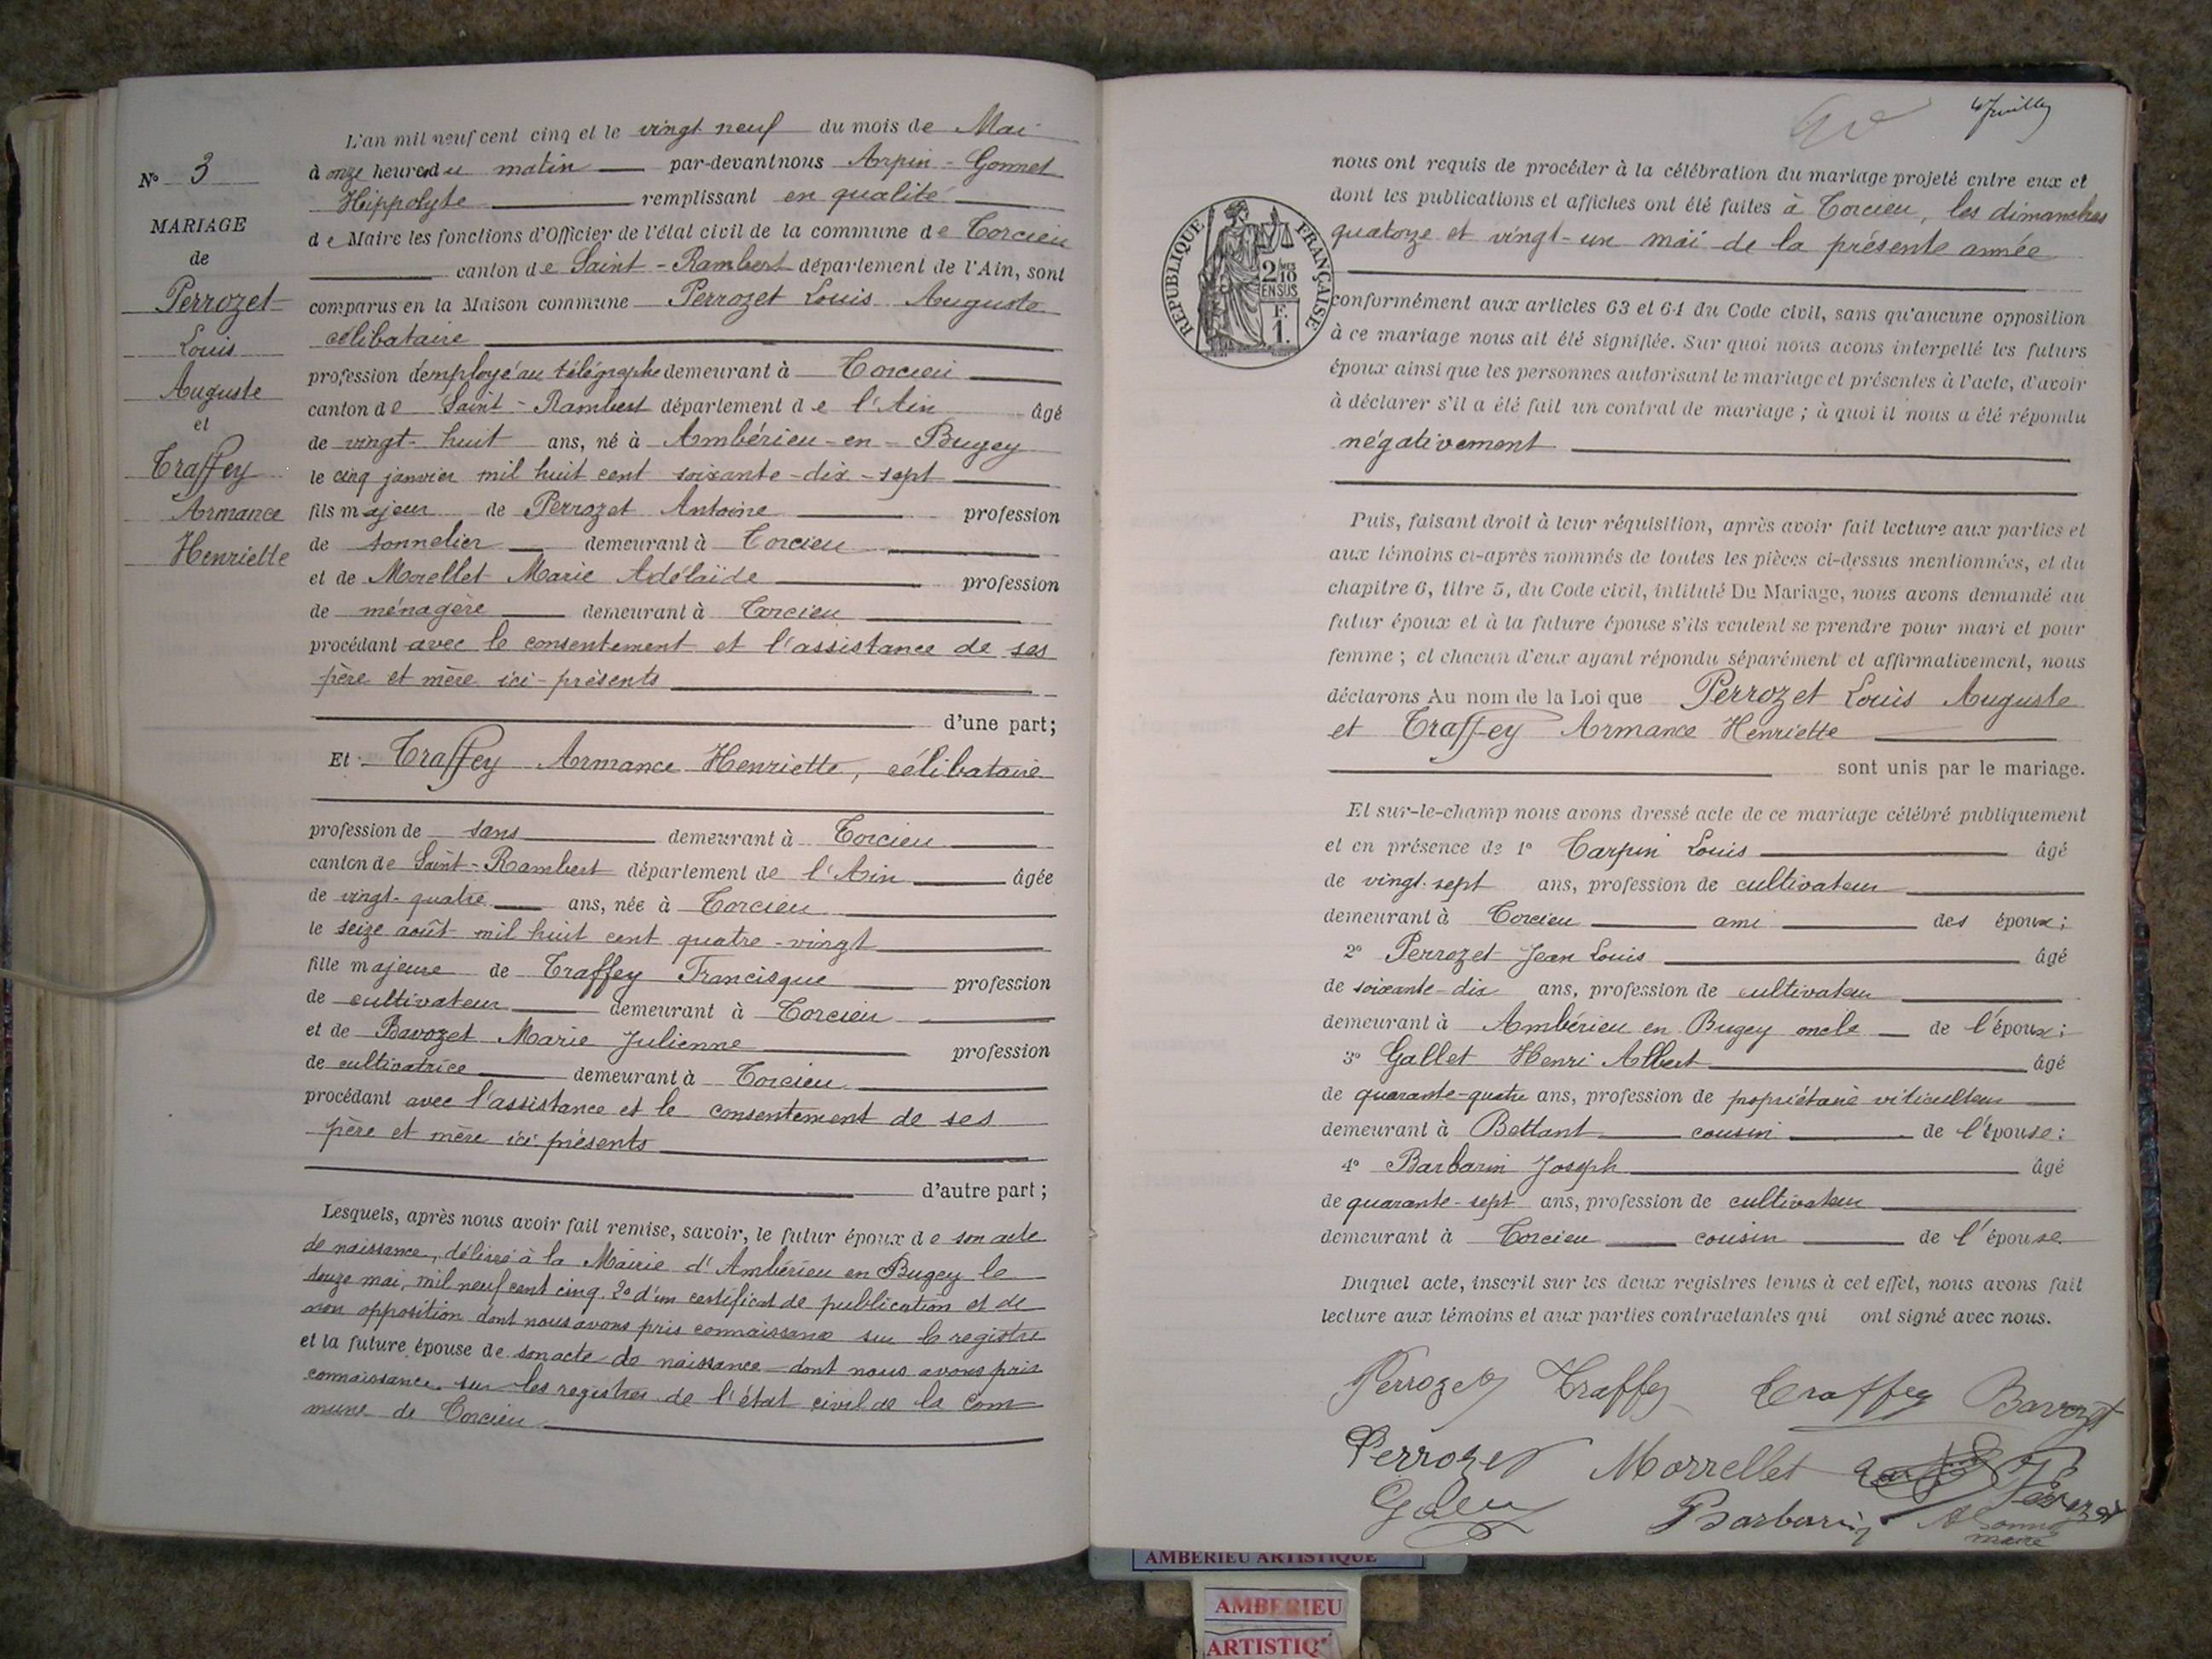 L'an mil neuf cent cinq et le vingt neuf du mois de Mai
N° 3
à onze heures du matin par-devant nous Arpin - Gonnet
Hippolyte remplissant en qualité
de Maire les fonctions d'Officier de l'état civil de la commune de Torcieu
canton de Saint-Rambert département de l'Ain, sont
comparus en la Maison commune Perrozet Louis Auguste
célibataire
profession d'employé au télégraphe demeurant à Torcieu
canton de Saint-Rambert département de l'Ain âgé
de vingt-huit ans, né à Ambérieu-en-Bugey
le cinq janvier mil huit cent soixante-dix-sept
fils majeur de Perrozet Antoine profession
de tonnelier demeurant à Torcieu
et de Morellet Marie Adélaïde profession
de ménagère demeurant à Torcieu
procédant avec le consentement et l'assistance de ses
père et mère ici-présents
d'une part;
Et Traffey Armance Henriette, célibataire
profession de sans demeurant à Torcieu
canton de Saint-Rambert département de l'Ain âgée
de vingt-quatre ans, née à Torcieu
le seize août mil huit cent quatre-vingt
fille majeure de Traffey Francisque profession
de cultivateur demeurant à Torcieu
et de Bavozet Marie Julienne profession
de cultivatrice demeurant à Torcieu
procédant avec l'assistance et le consentement de ses
père et mère ici présents
d'autre part;
Lesquels, après nous avoir fait remise, savoir, le futur époux de son acte
de naissance, délivré à la Mairie d'Ambérieu en Bugey le
douze mai, mil neuf cent cinq. 2° d'un certificat de publication et de
non opposition dont nous avons pris connaissance sur le registre
et la future épouse de son acte de naissance dont nous avons pris
connaissance sur les registres de l'état civil de la com
mune de Torcieu
MARIAGE
de
Perrozet
Louis
Auguste
et
Traffey
Armance
Henriette
nous ont requis de procéder à la célébration du mariage projeté entre eux et
dont les publications et affiches ont été faites à Torcieu, les dimanches
quatorze et vingt-un mai de la présente année
RÉPUBLIQUE FRANÇAISE
2/10MES
EN SUS
F.
1.
conformément aux articles 63 et 64 du Code civil, sans qu'aucune opposition
à ce mariage nous ait été signifiée. Sur quoi nous avons interpellé les futurs
époux ainsi que les personnes autorisant le mariage et présentes à l'acte, d'avoir
à déclarer s'il a été fait un contrat de mariage; à quoi il nous a été répondu
négativement
Puis, faisant droit à leur réquisition, après avoir fait lecture aux parties et
aux témoins ci-après nommés de toutes les pièces ci-dessus mentionnées, et du
chapitre 6, titre 5, du Code civil, intitulé Du Mariage, nous avons demandé au
futur époux et à la future épouse s'ils veulent se prendre pour mari et pour
femme; et chacun d'eux ayant répondu séparément et affirmativement, nous
déclarons Au nom de la Loi que Perrozet Louis Auguste
et Traffey Armance Henriette
sont unis par le mariage.
Et sur-le-champ nous avons dressé acte de ce mariage célébré publiquement
et en présence de 1° Tarpin Louis âgé
de vingt-sept ans, profession de cultivateur
demeurant à Torcieu ami des époux;
2° Perrozet Jean Louis âgé
de soixante-dix ans, profession de cultivateur
demeurant à Ambérieu en Bugey oncle de l'époux;
3° Gallet Henri Albert âgé
de quarante-quatre ans, profession de propriétaire viticulteur
demeurant à Bettant cousin de l'épouse:
4° Barbarin Joseph âgé
de quarante-sept ans, profession de cultivateur
demeurant à Torcieu cousin de l'épouse
Duquel acte, inscrit sur les deux registres tenus à cet effet, nous avons fait
lecture aux témoins et aux parties contractantes qui ont signé avec nous.
Perrozet Traffey Traffey Bavozet
Perrozet Morrellet Perrozet
Barbarin
maire
AMBERIEU ARTISTIQUE
AMBERIEU
ARTISTIQ